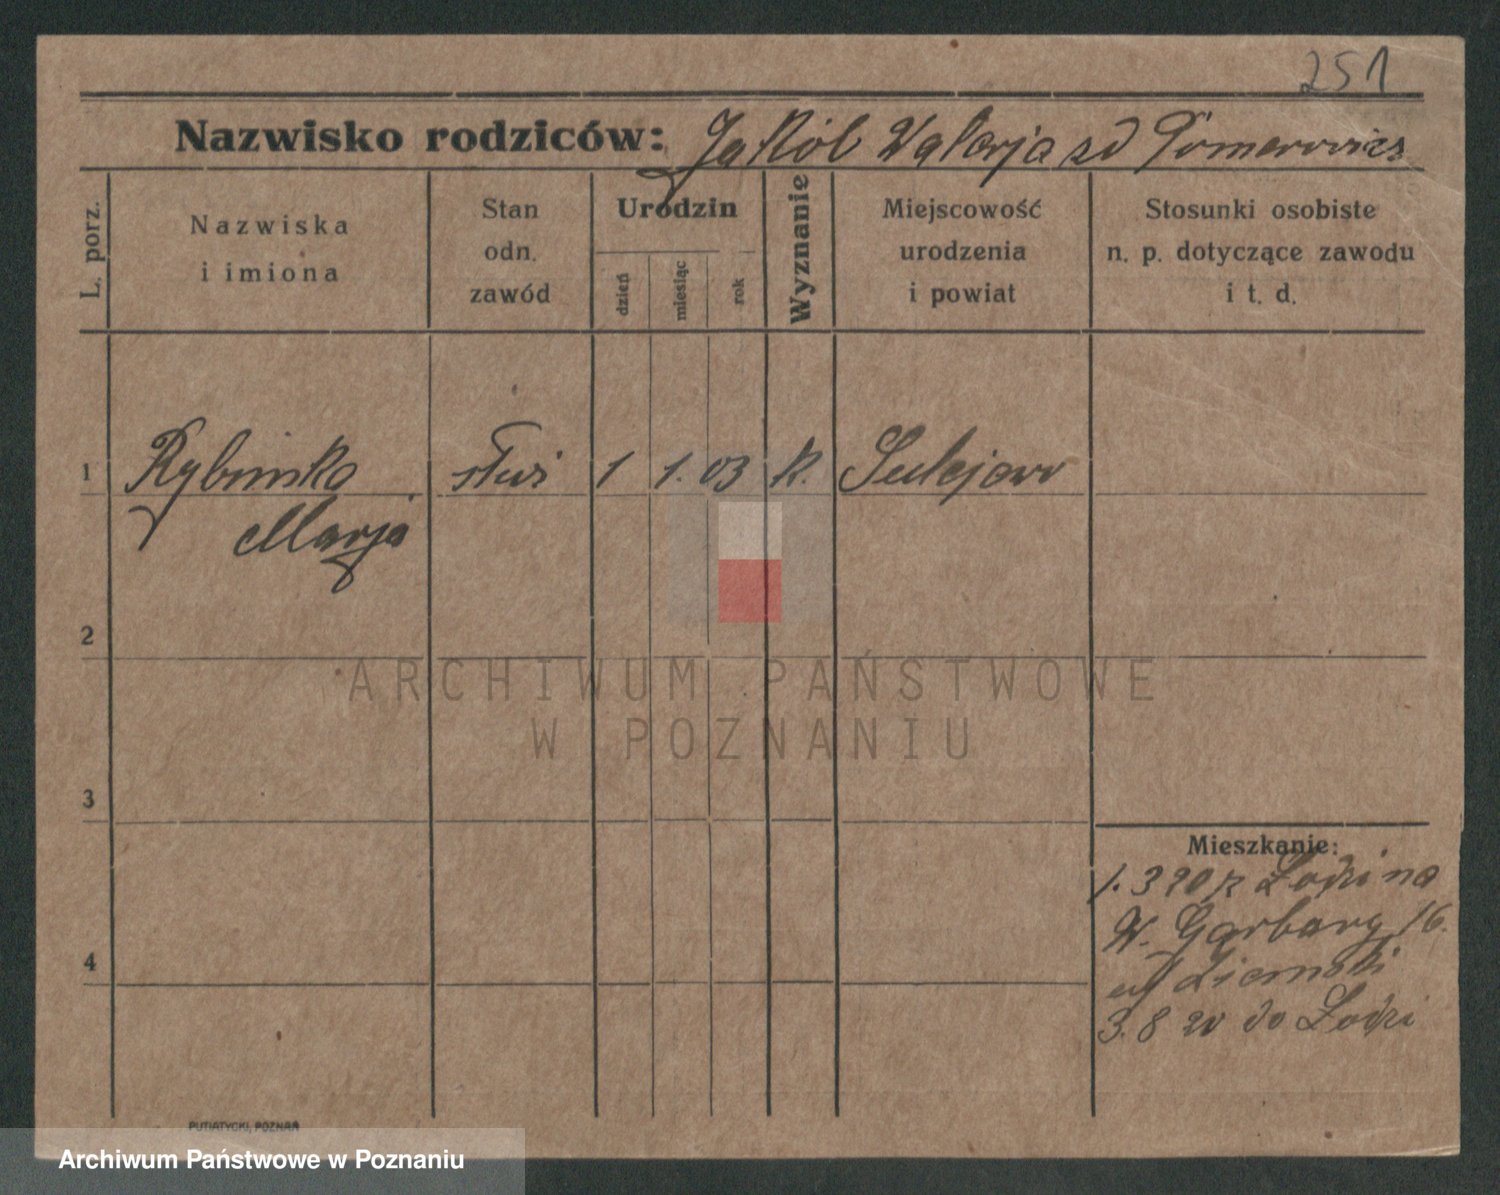 251
Nazwisko rodziców: Jakób Walerja zd
L. porz.
Nazwiska
i imiona
Stan
odn.
zawód
Urodzin
dzień
miesiąc
rok
Wyznanie
Miejscowość
urodzenia
i powiat
Stosunki osobiste
n. p. dotyczące zawodu
i t. d.
1 Rybinska służ 1 1. 03 k. Sulejow
Marja
2
ARCHIWUM PAŃSTWOWE
W POZNANIU
3
Mieszkanie:
1. 3 20 z Lodzi na
W. Garbary 16.
4
3. 8 20 do Lodzi
PUTIATYCKI, POZNAŃ
Archiwum Państwowe w Poznaniu